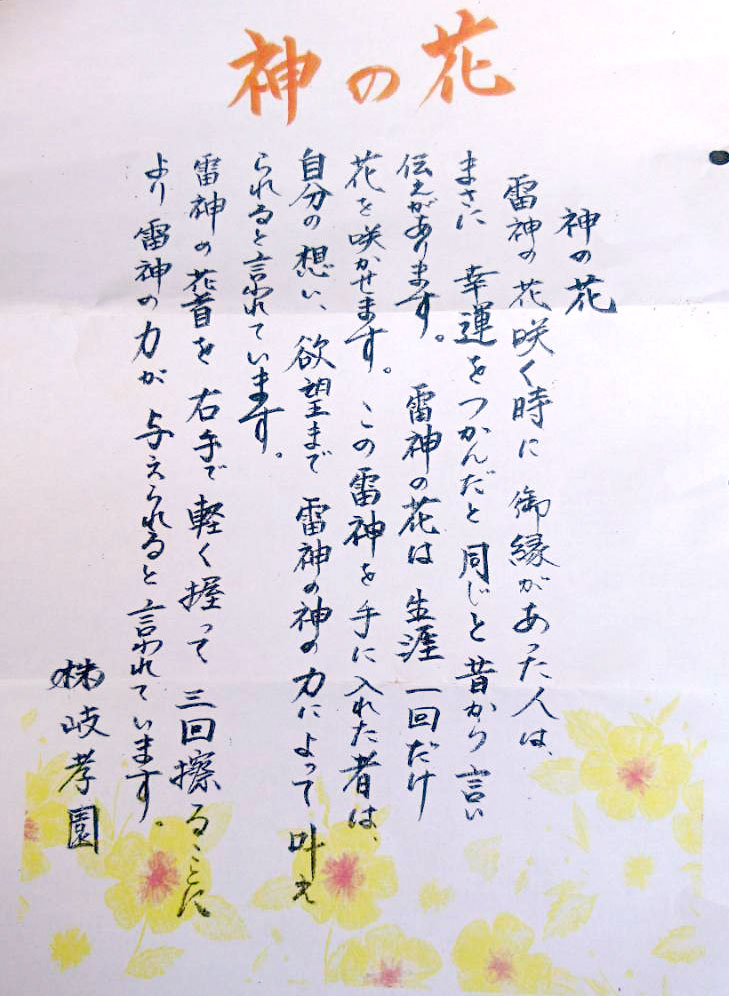 神の花
神の花
雷神の花咲く時に御縁があった人は、
まさに幸運をつかんだと同じと昔から言い
伝えがあります。雷神の花は生涯一回だけ
花を咲かせます。この雷神を手に入れた者は、
自分の想い、欲望まで雷神の神の力によって叶え
られると言われています。
雷神の花首を右手で軽く握って三回擦ることに
より雷神の力が与えられると言われています。
㈱岐孝園